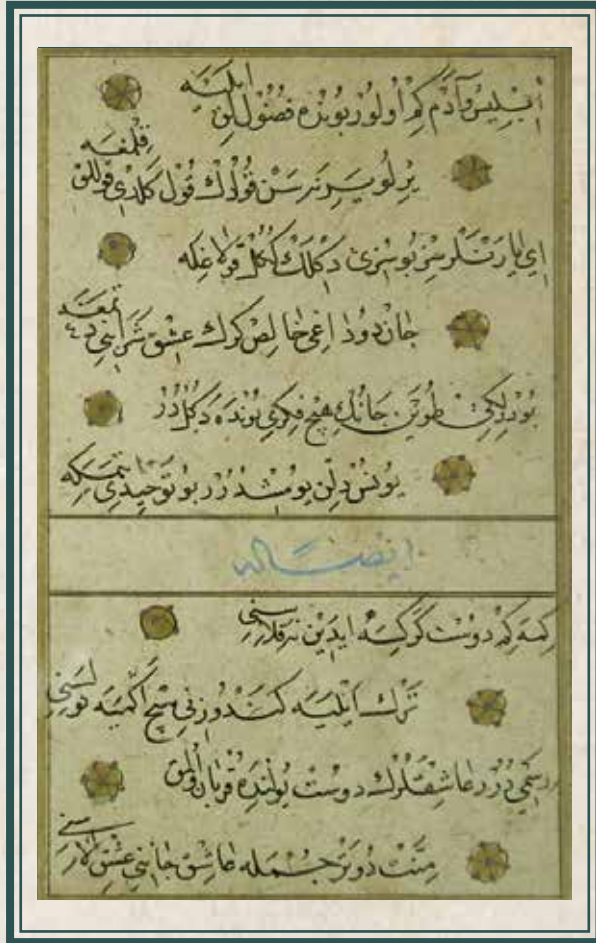 ابليس و آدم كم اولور بونده فضوللق ايلميه
بر لو يير نه سن قولدك قول كلدى قوللق قلمغه
اى يارنلر سز بو سزى دكلك ككل قولاغيله
جان دوداغى خالص كرك عشق شرابنى
بو ديرلكى طوين جانك هيچ فكرى بونده دكلدر
يونس دلن يومشدرر بو توحيدى
ايضا له
كمه كم دوست كركسه ايدين نه قلاسنى
ترك ايليه كندوزنى هيچ اكميه
رسمى درر عاشقلرك دوست يولنده قربان اولمق
منت دوتر جمله عاشق جاننى عشق